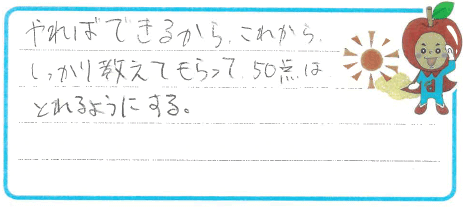 やればできるから、これから、
しっかり教えてもらって、50点は
とれるようにする。
d